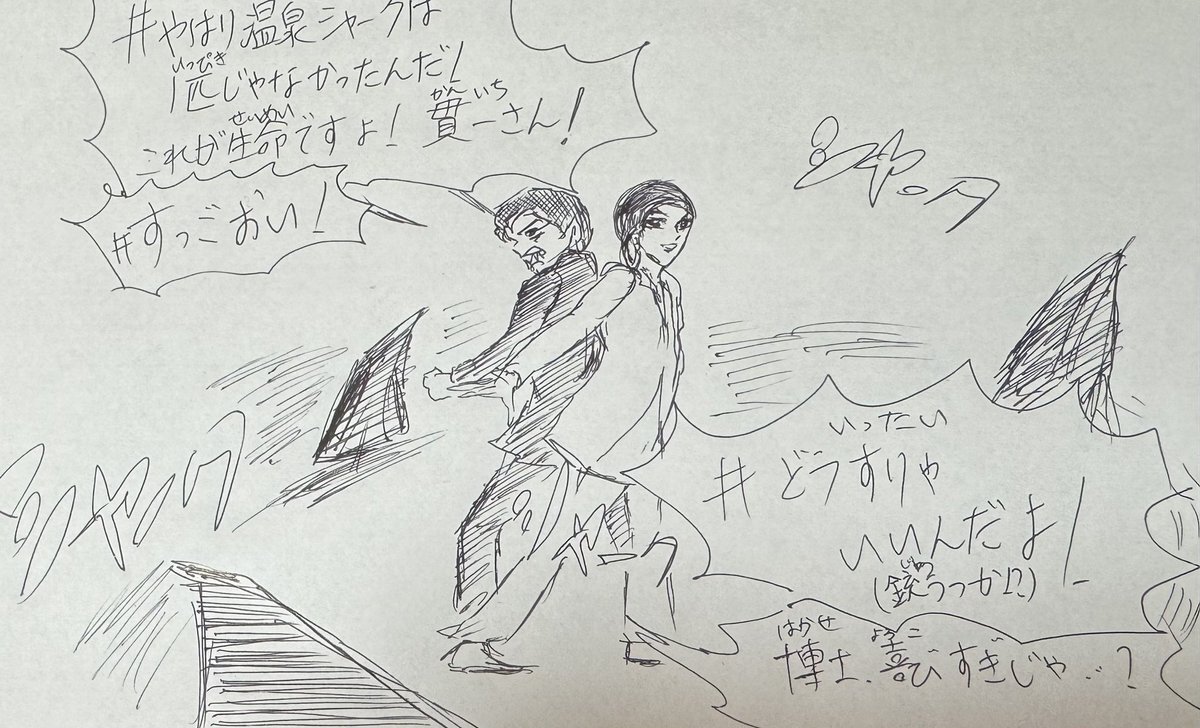 #やはり温泉シャークは
いっぴき
1匹じゃなかったんだ!
せいめい かんいち
これが生命ですよ! 貫一さん!
#すっごおい!
シャーク
シャーク
シャ
いったい
#どうすりゃ
いいんだよ!
じゅう
(銃うつか!?)
はかせ よろこ
博士、喜びすぎじゃ…?